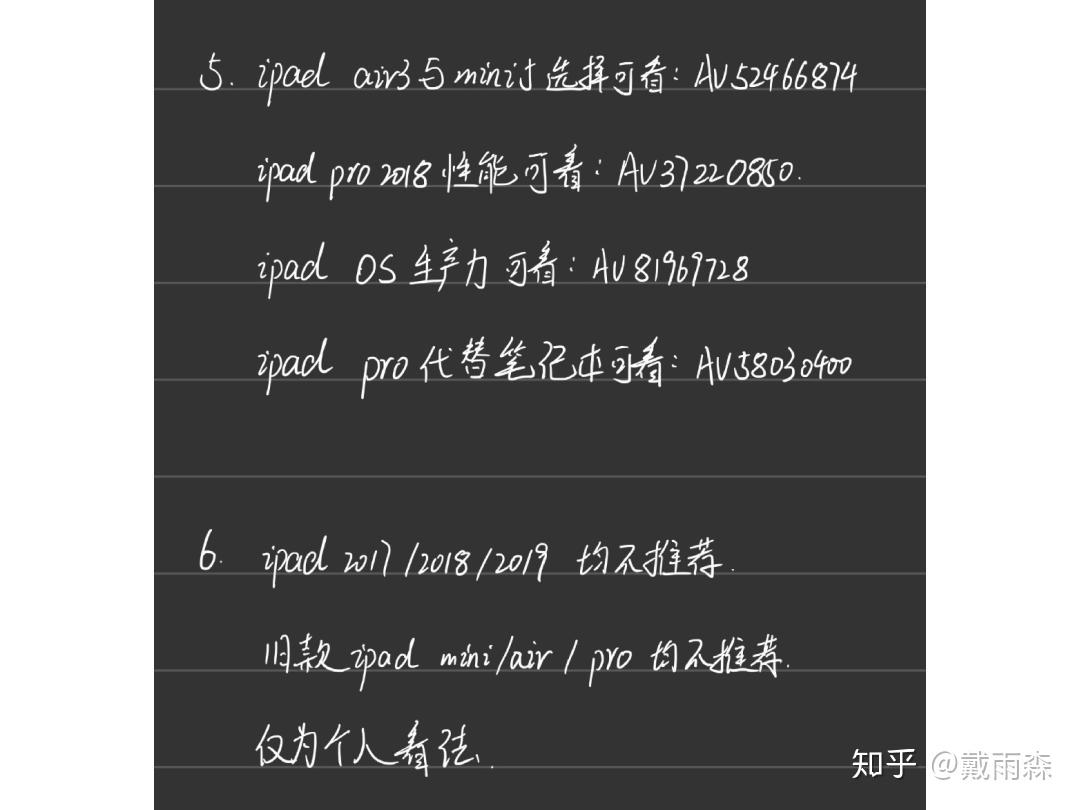 5. ipad air3与mini5选择可看: AV52466874
ipad pro 2018性能可看: AV37220850.
ipad OS 生产力可看: AV81969728
ipad pro代替笔记本可看: AV58030400
6. ipad 2017/2018/2019 均不推荐.
旧款ipad mini/air/pro 均不推荐.
仅为个人看法.
知乎 @戴雨森